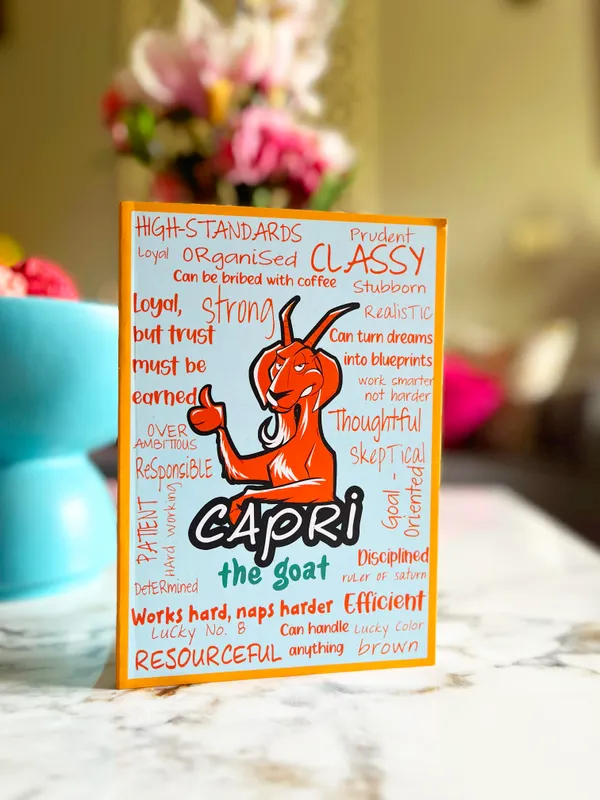 HIGH-STANDARDS
Prudent
Loyal
ORganiSed
CLASSY
Can be bribed with coffee
Stubborn
Loyal,
but trust
must be
earned
Strong
RealisTIC
Can turn dreams
into blueprints
work smarter
not harder
Thoughtful
OVER
AMBITIOUS
SkepTical
ReSponsIBLE
Goal -
Oriented
PATENT
HArd working
CAPRi
the goat
Disciplined
ruLer of saturn
DetERmined
Works hard, naps harder
Efficient
Lucky No. 8
Can handle
anything
Lucky Color
brown
RESOURCEFUL